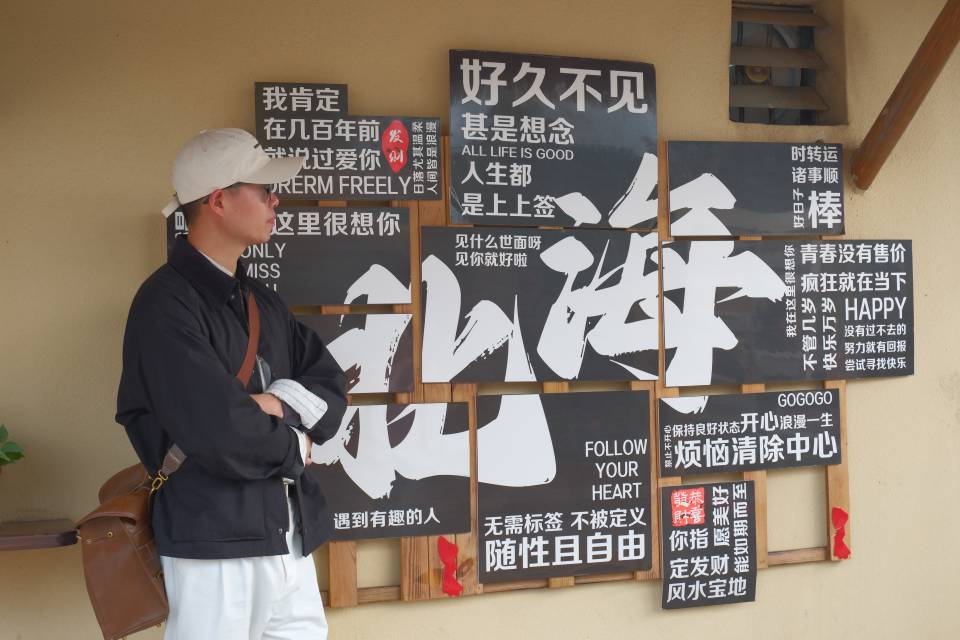 我肯定
在几百年前
就说过爱你
DRERM FREELY
发
日落尤其温柔
人间皆是浪漫
好久不见
甚是想念
ALL LIFE IS GOOD
人生都
是上上签
时转运
诸事顺
好日子
棒
这里很想你
ONLY
MISS
见什么世面呀
见你就好啦
北海
我在这里很想你
青春没有售价
疯狂就在当下
不管几岁
快乐万岁
HAPPY
没有过不去的
努力就有回报
尝试寻找快乐
遇到有趣的人
FOLLOW
YOUR
HEART
无需标签 不被定义
随性且自由
GOGOGO
禁止不开心
保持良好状态开心浪漫一生
烦恼清除中心
恭喜
發财
愿美好
能如期而至
你指
定发财
风水宝地